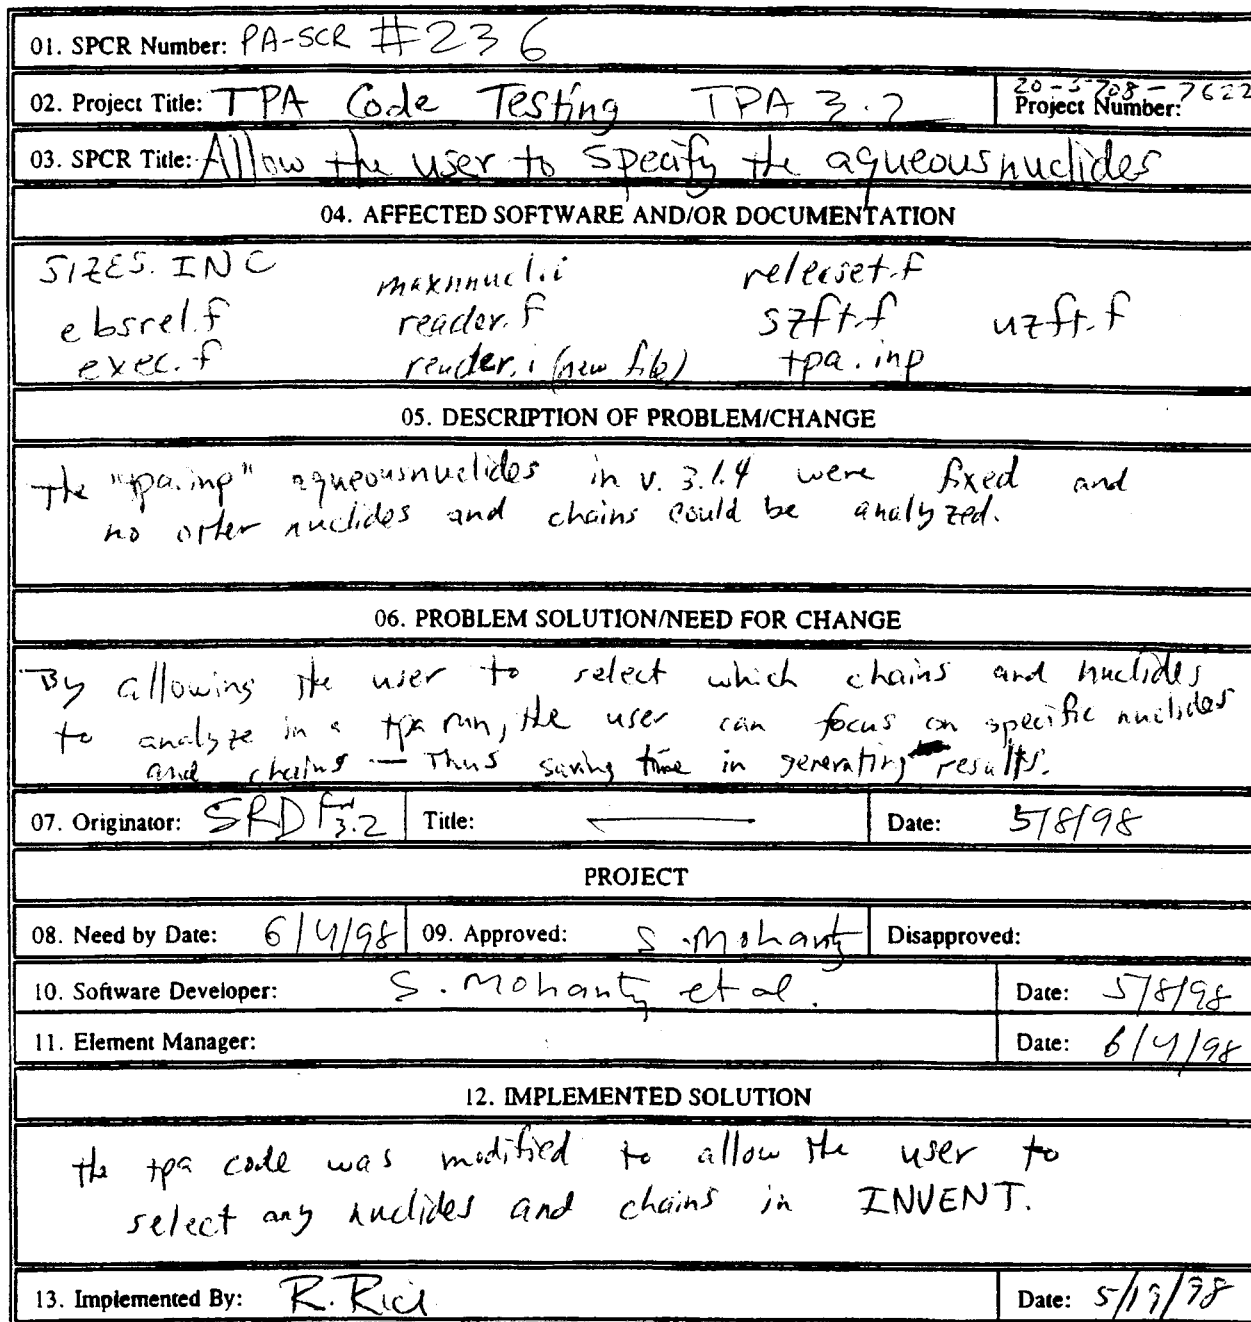 01. SPCR Number: PA-SCR #236
02. Project Title: TPA Code Testing TPA 3.2 Project Number: 20-5708-7622
03. SPCR Title: Allow the user to specify the aqueousnuclides
04. AFFECTED SOFTWARE AND/OR DOCUMENTATION
SIZES.INC maxnnucl.i releaset.f
ebsrel.f reader.f szft.f uzft.f
exec.f reader.i (new file) tpa.inp
05. DESCRIPTION OF PROBLEM/CHANGE
The "tpa.inp" aqueousnuclides in v. 3.1.4 were fixed and
no other nuclides and chains could be analyzed.
06. PROBLEM SOLUTION/NEED FOR CHANGE
By allowing the user to select which chains and nuclides
to analyze in a tpa run, the user can focus on specific nuclides
and chains — Thus saving time in generating results.
07. Originator: SRD for 3.2 Title: Date: 5/8/98
PROJECT
08. Need by Date: 6/4/98 09. Approved: S. Mohanty Disapproved:
10. Software Developer: S. Mohanty et al. Date: 5/8/98
11. Element Manager: Date: 6/4/98
12. IMPLEMENTED SOLUTION
the tpa code was modified to allow the user to
select any nuclides and chains in INVENT.
13. Implemented By: R. Rice Date: 5/19/98